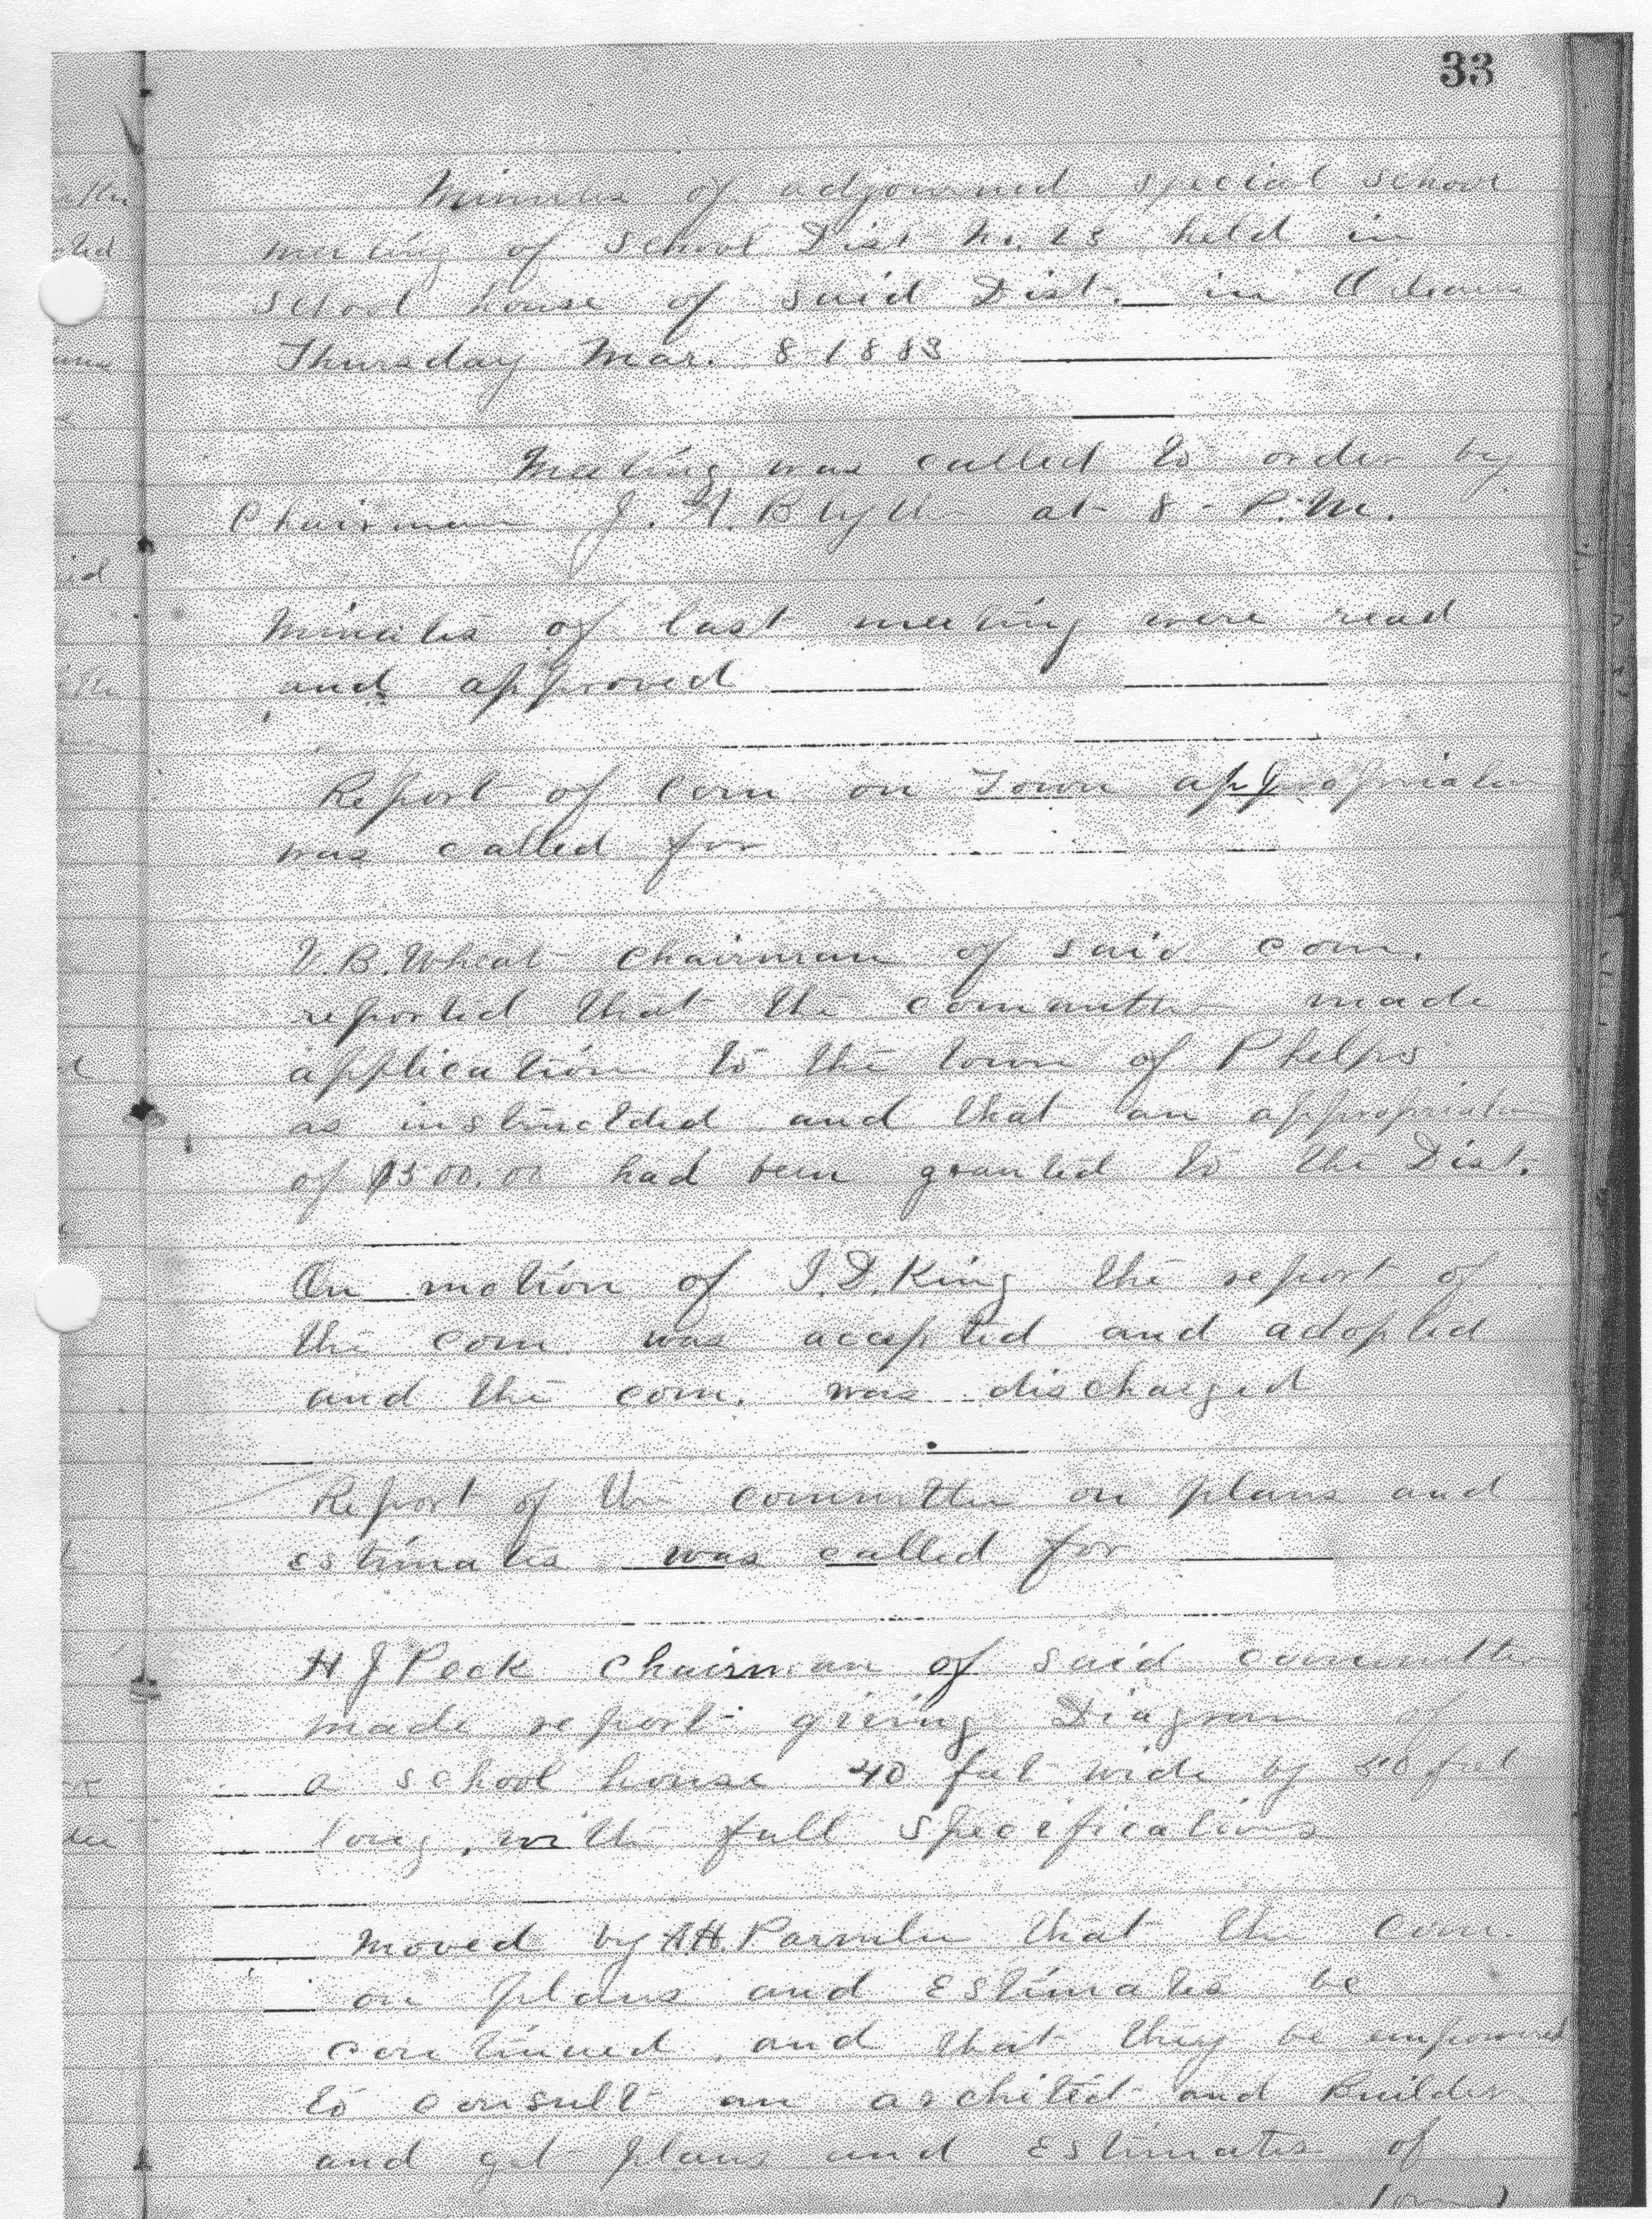 33
Minutes of adjourned special school
meeting of School Dist No. 23 held in
School house of said Dist. in Orleans
Thursday Mar. 8 1883
Meeting was called to order by
Chairman J. H. Blyth at 8 - P.M.
Minutes of last meeting were read
and approved
Report of Com on Town appropriation
was called for
V. B. Wheat Chairman of said com.
reported that the committee made
application to the town of Phelps
as instructded and that an appropriation
of $500.00 had been granted to the Dist.
On motion of I. D. King the report of
the com. was accepted and adopted
and the com. was discharged
Report of the committee on plans and
estimates was called for
H J Peck Chairman of said committee
made report giving Diagram of
a school house 40 feet wide by 50 feet
long, with full specifications
Moved by A H. Parmlee that the Com.
on plans and Estimates be
continued, and that they be empowered
to consult an architect and Builder
and get plans and Estimates of